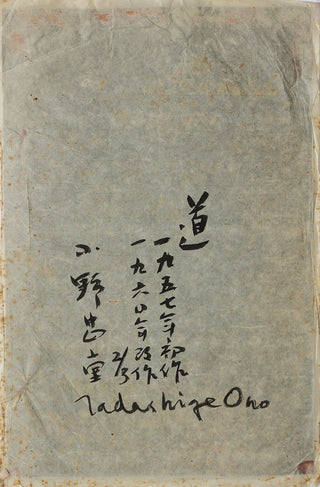 道
一九五七年初作
一九六〇年改作
2/3
小野忠重
Tadashige Ono